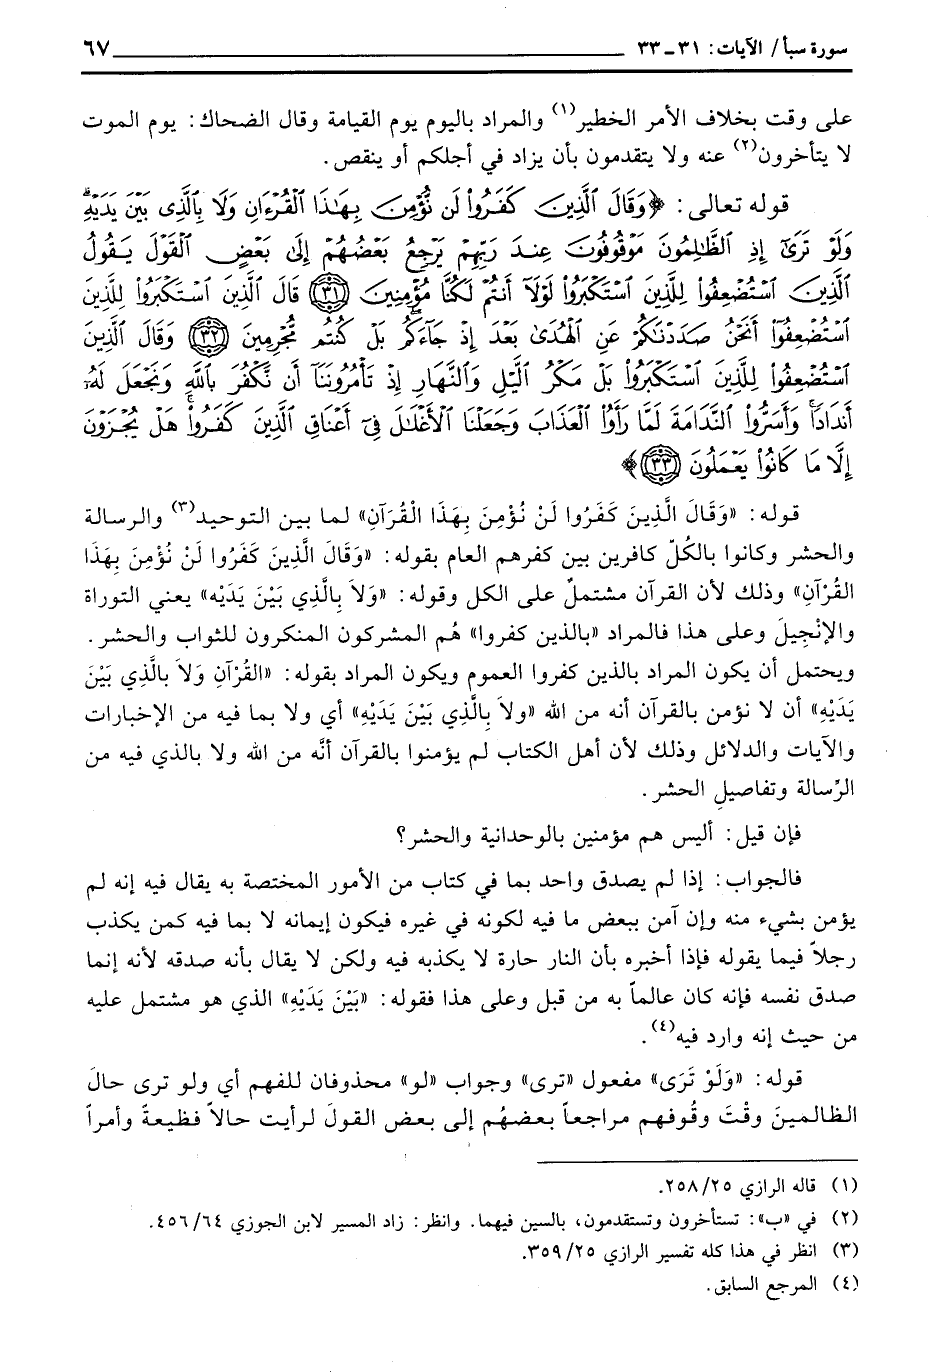 سورة سبأ/ الآيات: ٣١ - ٣٣ ٦٧
على وقت بخلاف الأمر الخطير(١) والمراد باليوم يوم القيامة وقال الضحاك: يوم الموت
لا يتأخرون(٢) عنه ولا يتقدمون بأن يزاد في أجلكم أو ينقص.
قوله تعالى: ﴿وَقَالَ ٱلَّذِينَ كَفَرُوا۟ لَن نُّؤْمِنَ بِهَـٰذَا ٱلْقُرْءَانِ وَلَا بِٱلَّذِى بَيْنَ يَدَيْهِۗ
وَلَوْ تَرَىٰٓ إِذِ ٱلظَّـٰلِمُونَ مَوْقُوفُونَ عِندَ رَبِّهِمْ يَرْجِعُ بَعْضُهُمْ إِلَىٰ بَعْضٍ ٱلْقَوْلَ يَقُولُ
ٱلَّذِينَ ٱسْتُضْعِفُوا۟ لِلَّذِينَ ٱسْتَكْبَرُوا۟ لَوْلَآ أَنتُمْ لَكُنَّا مُؤْمِنِينَ (٣١) قَالَ ٱلَّذِينَ ٱسْتَكْبَرُوا۟ لِلَّذِينَ
ٱسْتُضْعِفُوٓا۟ أَنَحْنُ صَدَدْنَـٰكُمْ عَنِ ٱلْهُدَىٰ بَعْدَ إِذْ جَآءَكُمۖ بَلْ كُنتُم مُّجْرِمِينَ (٣٢) وَقَالَ ٱلَّذِينَ
ٱسْتُضْعِفُوا۟ لِلَّذِينَ ٱسْتَكْبَرُوا۟ بَلْ مَكْرُ ٱلَّيْلِ وَٱلنَّهَارِ إِذْ تَأْمُرُونَنَآ أَن نَّكْفُرَ بِٱللَّهِ وَنَجْعَلَ لَهُۥٓ
أَندَادًاۚ وَأَسَرُّوا۟ ٱلنَّدَامَةَ لَمَّا رَأَوُا۟ ٱلْعَذَابَ وَجَعَلْنَا ٱلْأَغْلَـٰلَ فِىٓ أَعْنَاقِ ٱلَّذِينَ كَفَرُوا۟ۚ هَلْ يُجْزَوْنَ
إِلَّا مَا كَانُوا۟ يَعْمَلُونَ (٣٣)﴾
قوله: «وَقَالَ الَّذِينَ كَفَرُوا لَنْ نُؤْمِنَ بِهَذَا الْقُرَآنِ» لما بين التوحيد(٣) والرسالة
والحشر وكانوا بالكُلّ كافرين بين كفرهم العام بقوله: «وَقَالَ الَّذِينَ كَفَرُوا لَنْ نُؤْمِنَ بِهَذَا
القُرْآنِ» وذلك لأن القرآن مشتملٌ على الكل وقوله: «وَلاَ بِالَّذِي بَيْنَ يَدَيْه» يعني التوراة
والإنْجِيلَ وعلى هذا فالمراد «بالذين كفروا» هُم المشركون المنكرون للثواب والحشر.
ويحتمل أن يكون المراد بالذين كفروا العموم ويكون المراد بقوله: «القُرْآنِ وَلاَ بالَّذِي بَيْنَ
يَدَيْهِ» أن لا نؤمن بالقرآن أنه من الله «ولاَ بِالَّذِي بَيْنَ يَدَيْهِ» أي ولا بما فيه من الإخبارات
والآيات والدلائل وذلك لأن أهل الكتاب لم يؤمنوا بالقرآن أنَّه من الله ولا بالذي فيه من
الرِّسالة وتفاصيلِ الحشر.
فإن قيل: أليس هم مؤمنين بالوحدانية والحشر؟
فالجواب: إذا لم يصدق واحد بما في كتاب من الأمور المختصة به يقال فيه إنه لم
يؤمن بشيء منه وإن آمن ببعض ما فيه لكونه في غيره فيكون إيمانه لا بما فيه كمن يكذب
رجلاً فيما يقوله فإذا أخبره بأن النار حارة لا يكذبه فيه ولكن لا يقال بأنه صدقه لأنه إنما
صدق نفسه فإنه كان عالماً به من قبل وعلى هذا فقوله: «بَيْنَ يَدَيْهِ» الذي هو مشتمل عليه
من حيث إنه وارد فيه(٤).
قوله: «وَلَوْ تَرَى» مفعول «ترى» وجواب «لو» محذوفان للفهم أي ولو ترى حالَ
الظالمينَ وقْتَ وقُوفهم مراجعاً بعضهُم إلى بعض القولَ لرأيت حالاً فظيعةً وأمراً
(١) قاله الرازي ٢٥٨/٢٥.
(٢) في «ب»: تستأخرون وتستقدمون، بالسين فيهما. وانظر: زاد المسير لابن الجوزي ٤٥٦/٦٤.
(٣) انظر في هذا كله تفسير الرازي ٣٥٩/٢٥.
(٤) المرجع السابق.